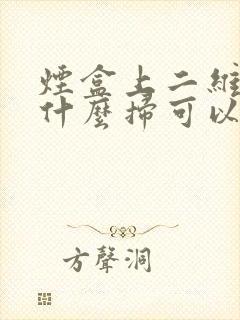 煙盒上二維
什麼掃可以
方聲洞